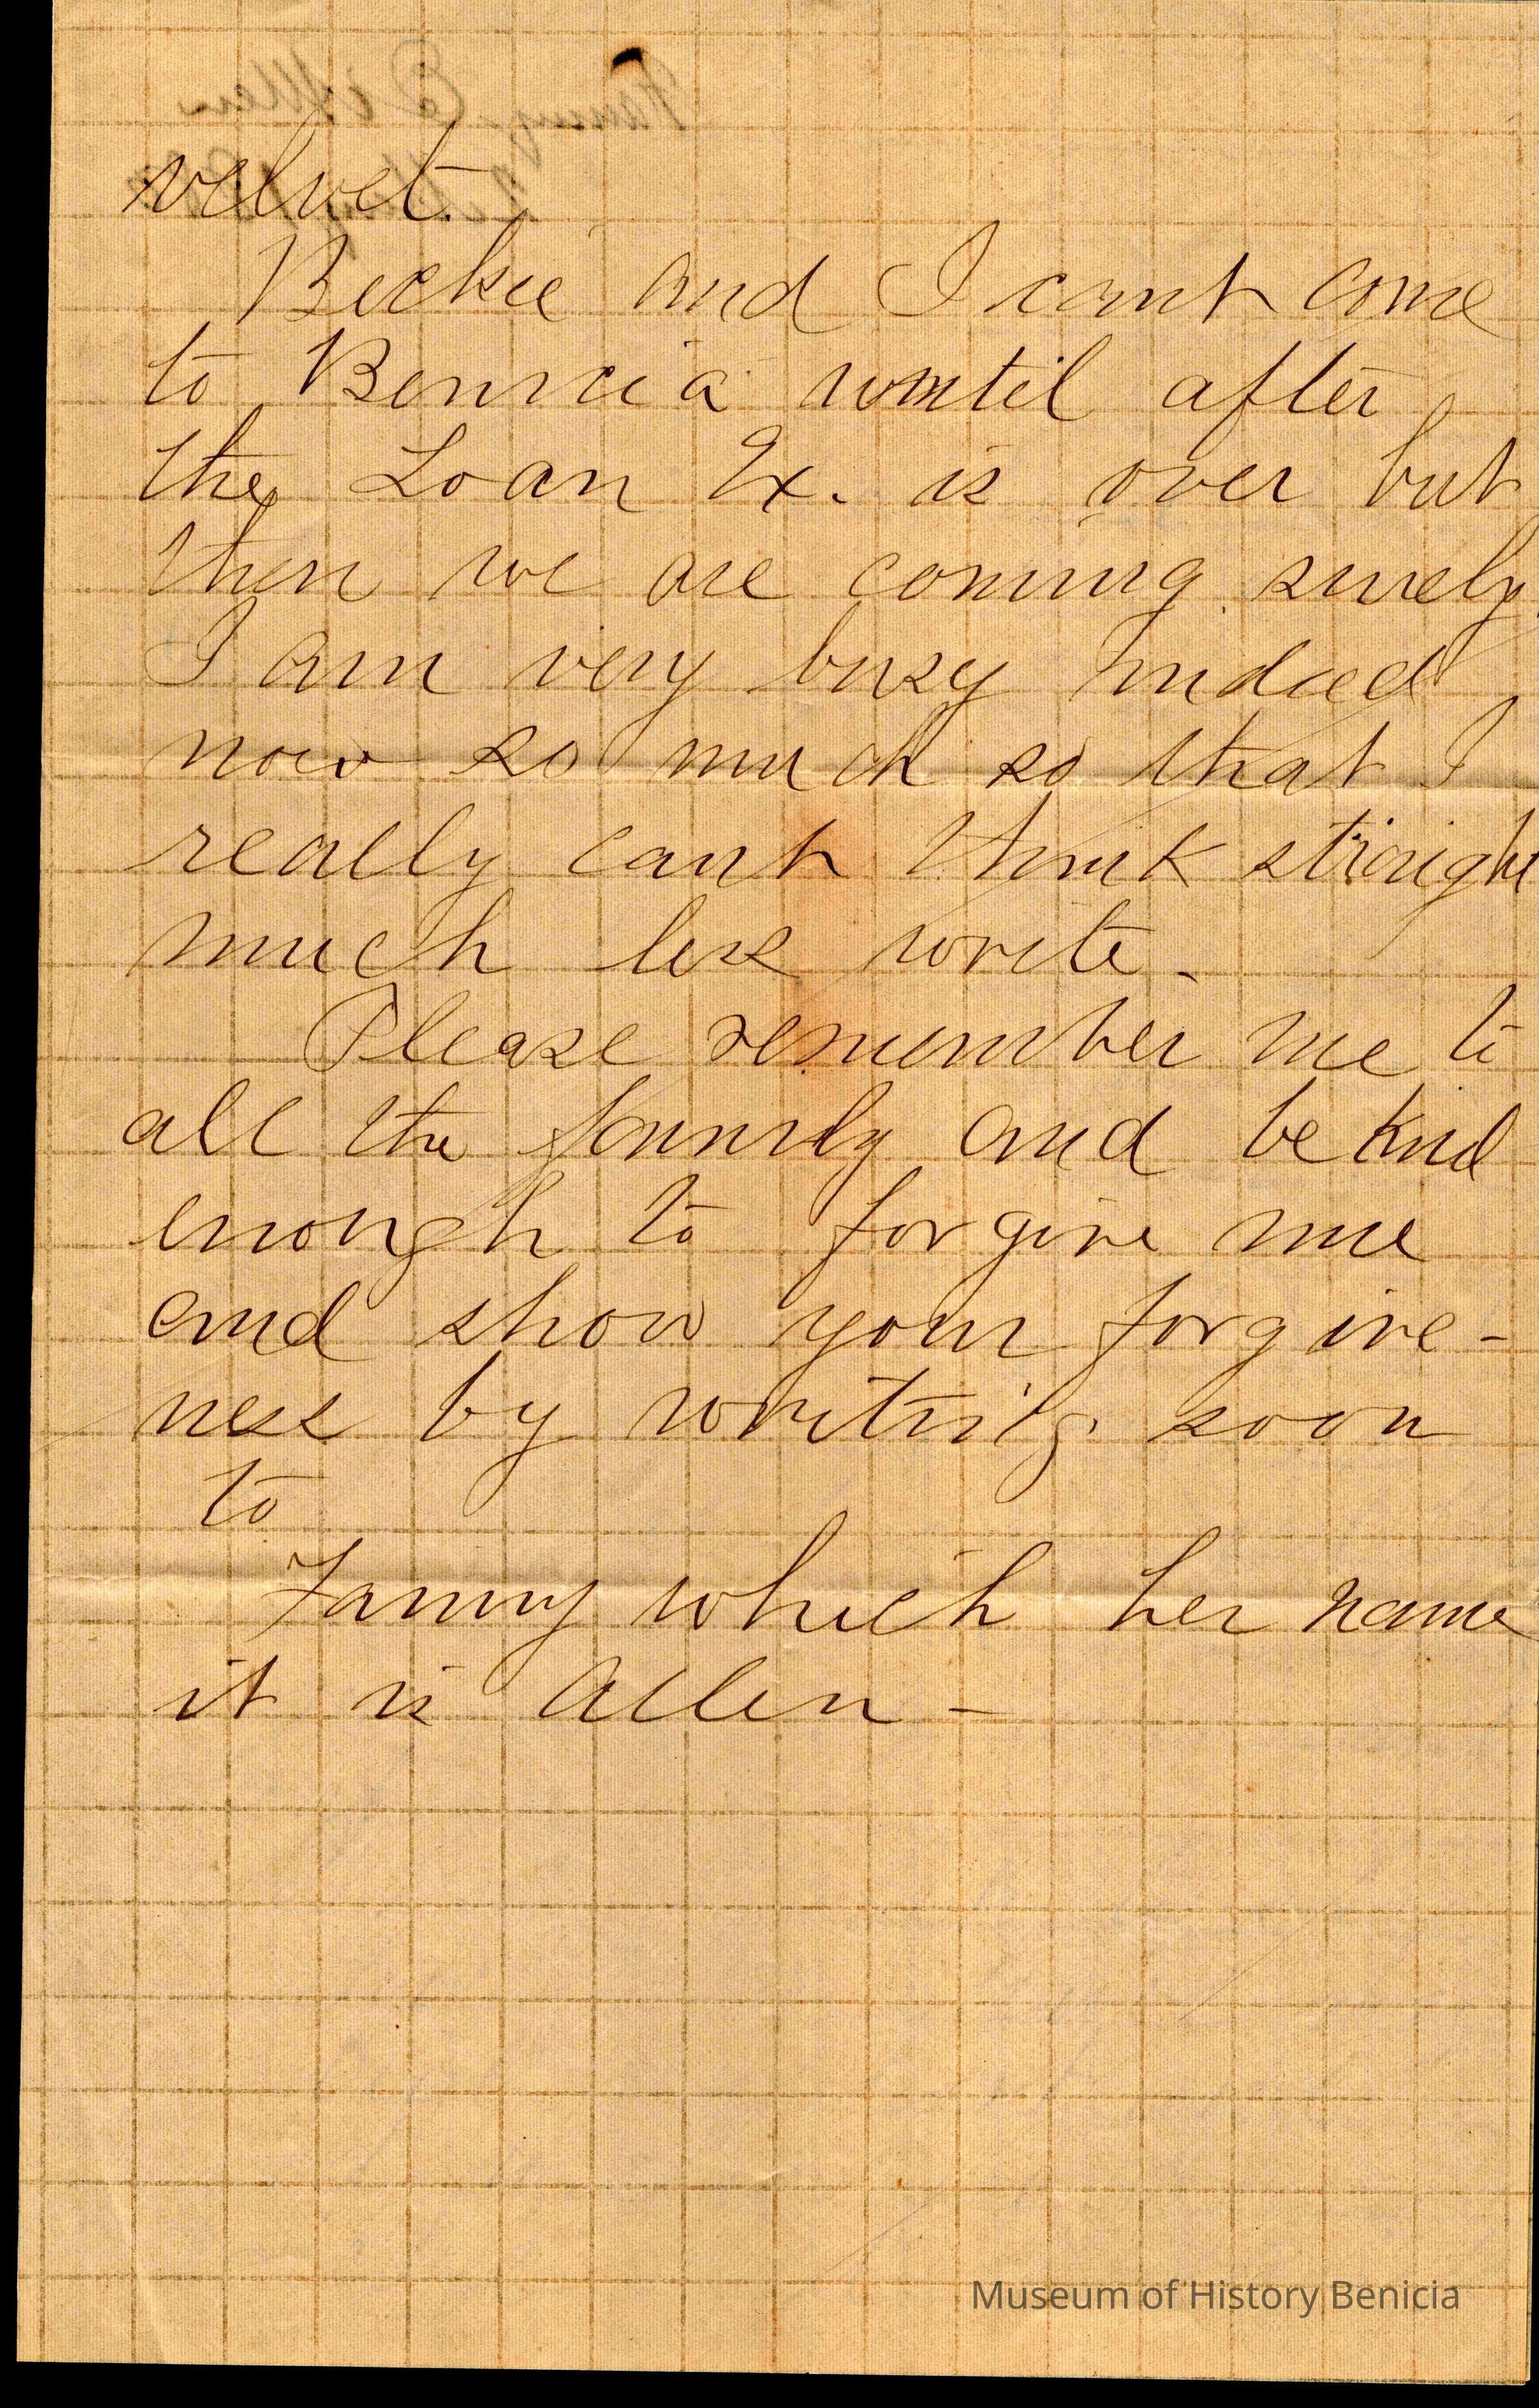 velvet.
Beckie and I cant come
to Benicia until after
the Loan Ex. is over but
then we are coming surely
I am very busy indeed
now so much so that I
really cant think straight
much less write.
Please remember me to
all the family and be kind
enough to forgive me
and show your forgive-
ness by writing soon
to
Fanny which her name
it is Allen -
Museum of History Benicia